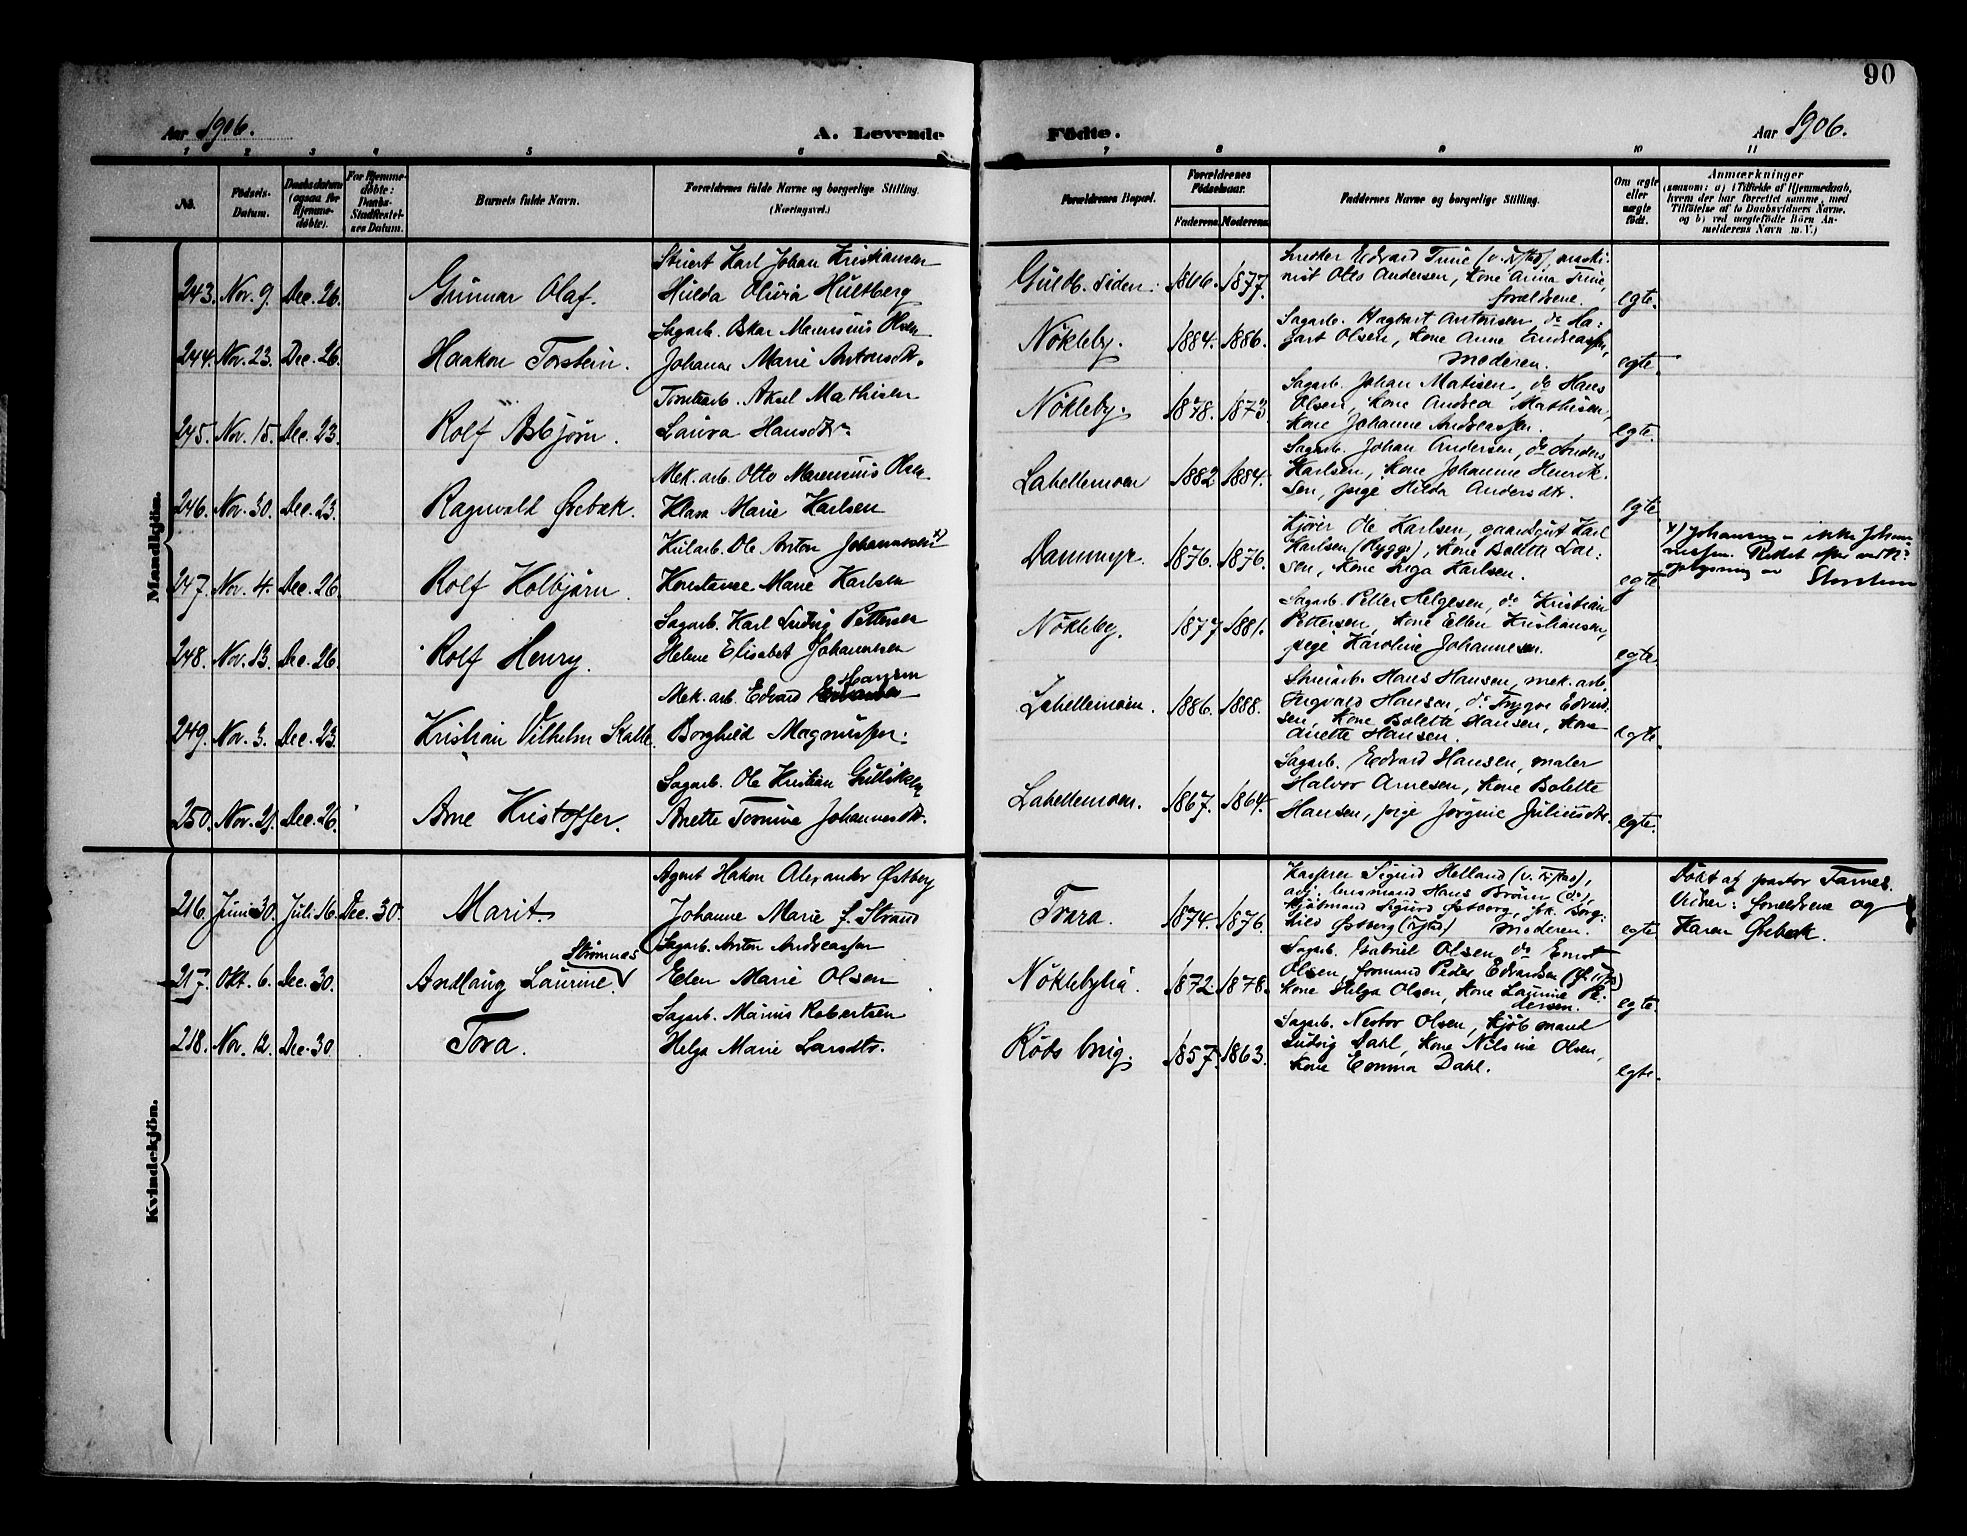 90
Aar 1906.
A. Levende
Födte.
Aar 1906.
1 2 3 4 5 6 7 8 9 10 11
No.
Födsels-
Datum.
Daabsdatum
(ogsaa for
Hjemme-
döbte).
For Hjemme-
döbte:
Daabs-
Stadfæstel-
ses Datum.
Barnets fulde Navn.
Forældrenes fulde Navne og borgerlige Stilling.
(Næringsvei.)
Forældrenes Bopæl.
Forældrenes
Födselsaar.
Faderens. Moderens.
Faddernes Navne og borgerlige Stilling.
Om ægte
eller
uægte
født.
Anmærkninger
(saasom: a) i Tilfælde af Hjemmedaab,
hvem der har forrettet samme, med
Tilföielse af to Daabsvidners Navne,
og b) ved uægtefödte Börn An-
melderens Navn m. V.)
Mandkjön.
243. Nov. 9. Dec. 26. Gunnar Olaf.
Stuert Karl Johan Kristiansen
Hulda Olivia Hultberg
Guldb. siden. 1866. 1877.
Snedker Edvard Tune (v. Krstad), maski-
nist Otto Andersen, kone Anna Tune,
forældrene.
egte.
244. Nov. 23. Dec. 26. Haakon Torstein.
Sagarb. Oskar Marensius Olsen
Johanne Marie Antonsdtr.
Nökleby. 1884. 1886.
Sagarb. Hagbart Antonsen, do Ha-
gart Olsen, kone Anne Andreassen,
moderen.
egte.
245. Nov. 15. Dec. 23. Rolf Asbjørn.
Tomtearb. Aksel Mathisen
Laura Hansdtr.
Nökleby. 1878. 1873
Sagarb. Johan Matisen, do Hans
Olsen, kone Andrea Mathisen,
kone Johanne Andreassen.
egte.
246. Nov. 30. Dec. 23. Ragnvald Ørebæk.
Mek. arb. Otto Marensius Olsen
Klara Marie Karlsen
Labellemoen 1882 1884.
Sagarb. Johan Andersen, do Anders
Karlsen, kone Johanne Henrik-
sen, pige Hilda Andersdtr.
egte.
247. Nov. 4. Dec. 26. Rolf Kolbjørn.
Kularb. Ole Anton Johannessen x)
Konstanse Marie Karlsen
Dammyr. 1876. 1876.
Kjører Ole Karlsen, gaardgut Karl
Karlsen (Rygge), kone Bolette Lar-
sen, kone Inga Karlsen.
egte
x) Johansen – ikke Johan-
nessen. Rettet efter
oplysning
248. Nov. 13. Dec. 26. Rolf Henry.
Sagarb. Karl Ludvig Pettersen
Helene Elisabet Johannesen
Nökleby. 1877 1881.
Sagarb. Petter Helgesen, do Kristian
Pettersen, kone Ellen Kristiansen,
pige Karoline Johannesen.
egte.
249. Nov. 3. Dec. 23. Kristian Vilhelm
Mek. arb. Edvard Hansen
Borghild Magnussen.
Labellemoen. 1886. 1888.
Hans Hansen, mek. arb.
Ingvald Hansen, do Trygve Edvard-
sen, kone Bolette Hansen, kone
Anette Hansen.
egte.
250. Nov. 21. Dec. 26. Arne Kristoffer.
Sagarb. Ole Kristian Gulliksen
Anette Tomine Johannesdtr.
Labellemoen. 1867. 1864.
Sagarb. Edvard Hansen, maler
Halvor Arnesen, kone Bolette
Hansen, pige Jørgine Juliusdtr.
egte.
Kvindekjön.
216. Juni 30. Juli 16. Dec. 30. Marit
Agent Hakon Alexander Østberg
Johanne Marie f. Strand
Trara. 1874. 1876.
Kasserer Sigurd Helland
lensmand Hans Bruun (do),
kjøbmand Sigurd Østberg, frk. Borg-
hild Østberg moderen.
egte
Døbt af pastor Tarnes.
Vidner: forældrene og
Karen Ørebæk.
217. Okt. 6. Dec. 30. Andlaug Laurine Strømnes
Sagarb. Anton Andreassen
Elen Marie Olsen
Nöklebylia. 1872. 1878.
Sagarb. Gabriel Olsen, do Ernst
Olsen, formand Peder Edvardsen
kone Helga Olsen, kone Laurine Pe-
dersen.
egte.
218. Nov. 12. Dec. 30. Tora.
Sagarb. Marius Robertsen
Helga Marie Larsdtr.
Röds brug. 1857. 1863.
Sagarb. Nestor Olsen, kjøbmand
Ludvig Dahl, kone Nilsine Olsen,
kone Emma Dahl.
egte.